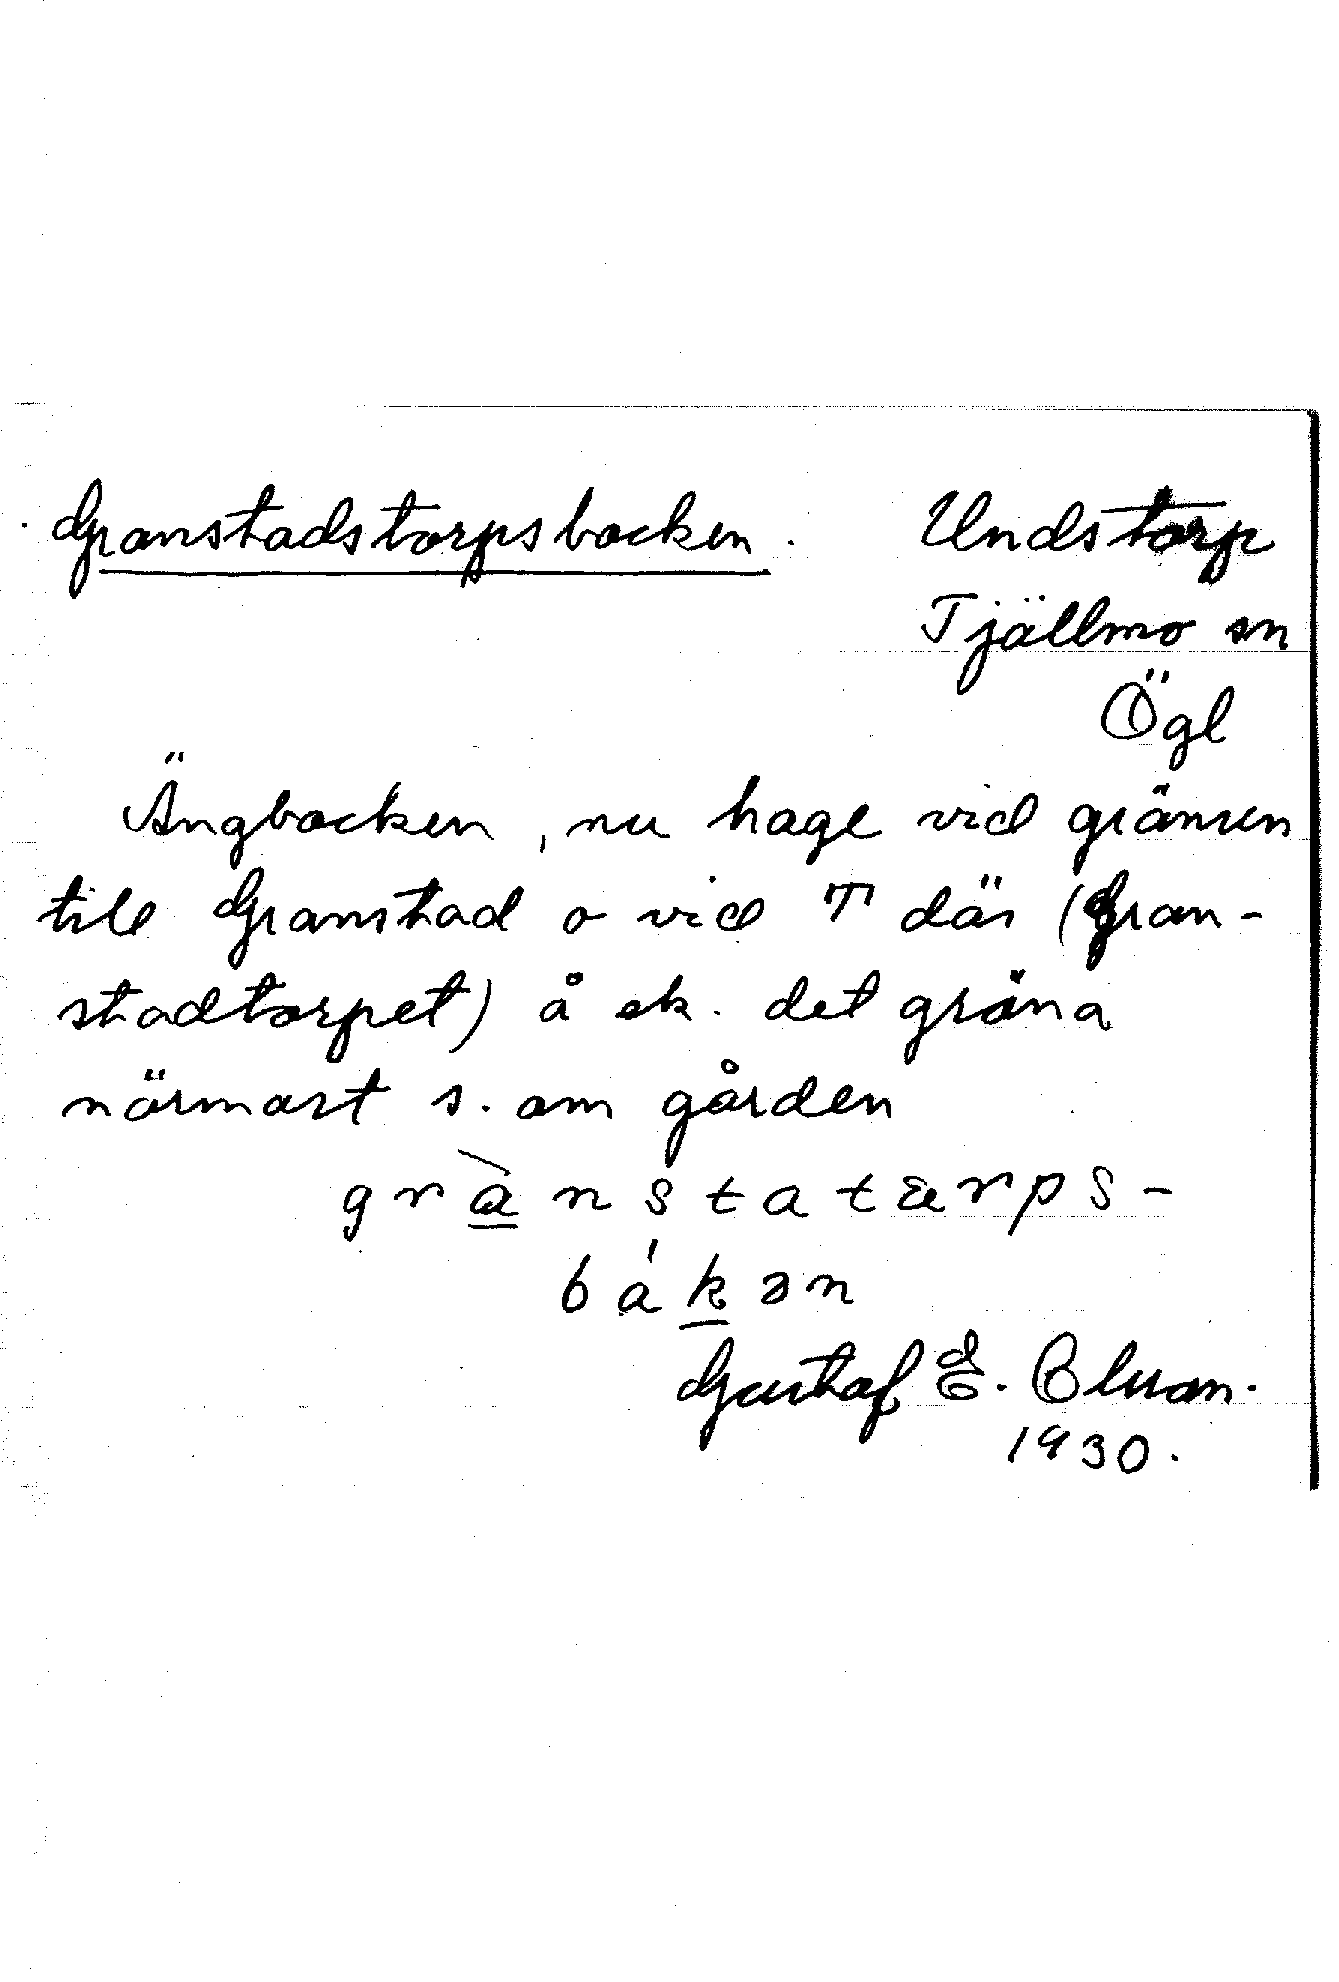 Granstadstorpsbacken. Undstorp
Tjällmo sn
Ögl
Ängbacken, nu hage vid gränsen
till Granstad o vid T där (Gran-
stadtorpet) å ek. det gröna
närmast s. om gården
grànstatærps-
bákən
Gustaf E. Olsson.
1930.